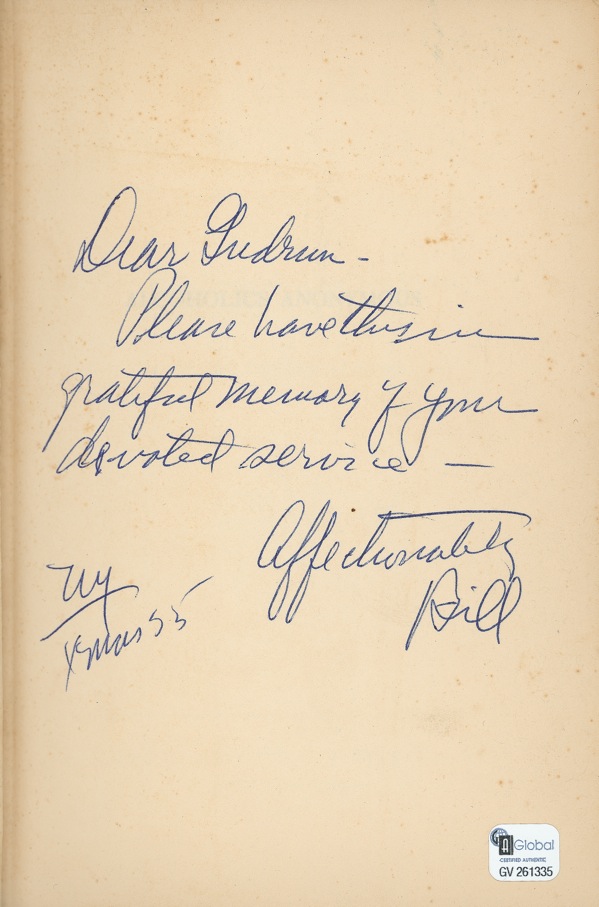 Dear Gudrun -
Please have this in
grateful memory of your
devoted service —
Affectionately
Bill
NY
Xmas 55
Global
CERTIFIED AUTHENTIC
GV 261335